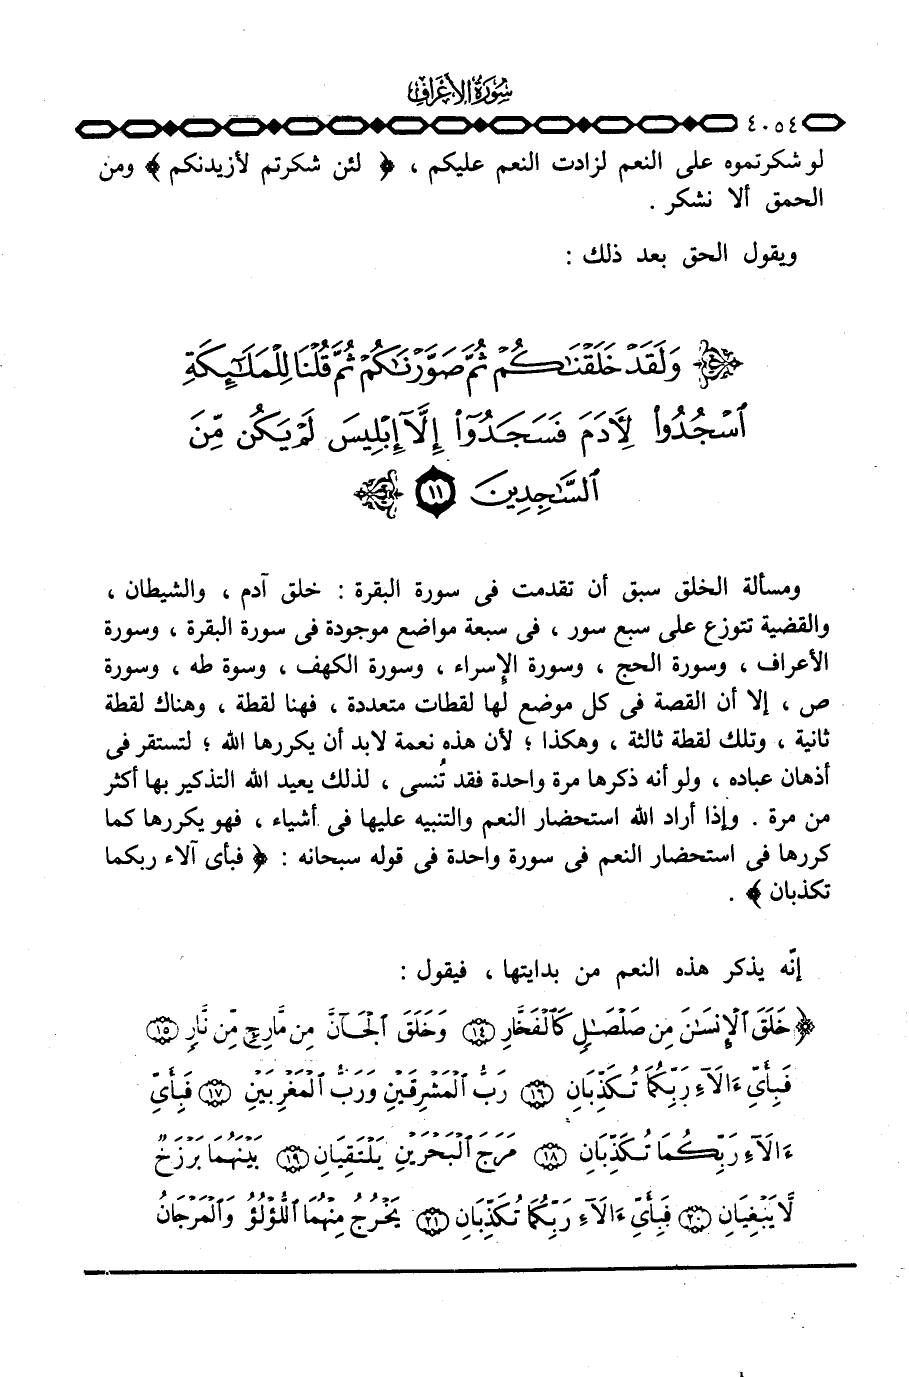 سُورَةُ الأَعْرَافِ
٤٠٥٤
لو شكرتموه على النعم لزادت النعم عليكم ، ﴿ لئن شكرتم لأزيدنكم ﴾ ومن
الحمق ألا نشكر .
ويقول الحق بعد ذلك :
﴿ وَلَقَدْ خَلَقْنَٰكُمْ ثُمَّ صَوَّرْنَٰكُمْ ثُمَّ قُلْنَا لِلْمَلَٰٓئِكَةِ
ٱسْجُدُوا۟ لِأَدَمَ فَسَجَدُوٓا۟ إِلَّآ إِبْلِيسَ لَمْ يَكُن مِّنَ
ٱلسَّٰجِدِينَ ١١ ﴾
ومسألة الخلق سبق أن تقدمت فى سورة البقرة : خلق آدم ، والشيطان ،
والقضية تتوزع على سبع سور ، فى سبعة مواضع موجودة فى سورة البقرة ، وسورة
الأعراف ، وسورة الحج ، وسورة الإسراء ، وسورة الكهف ، وسوة طه ، وسورة
ص ، إلا أن القصة فى كل موضع لها لقطات متعددة ، فهنا لقطة ، وهناك لقطة
ثانية ، وتلك لقطة ثالثة ، وهكذا ؛ لأن هذه نعمة لابد أن يكررها الله ؛ لتستقر فى
أذهان عباده ، ولو أنه ذكرها مرة واحدة فقد تُنسى ، لذلك يعيد الله التذكير بها أكثر
من مرة . وإذا أراد الله استحضار النعم والتنبيه عليها فى أشياء ، فهو يكررها كما
كررها فى استحضار النعم فى سورة واحدة فى قوله سبحانه : ﴿ فبأى آلاء ربكما
تكذبان ﴾ .
إنّه يذكر هذه النعم من بدايتها ، فيقول :
﴿ خَلَقَ ٱلْإِنسَٰنَ مِن صَلْصَٰلٍ كَٱلْفَخَّارِ ١٤ وَخَلَقَ ٱلْجَآنَّ مِن مَّارِجٍ مِّن نَّارٍ ١٥
فَبِأَيِّ ءَالَآءِ رَبِّكُمَا تُكَذِّبَانِ ١٦ رَبُّ ٱلْمَشْرِقَيْنِ وَرَبُّ ٱلْمَغْرِبَيْنِ ١٧ فَبِأَيِّ
ءَالَآءِ رَبِّكُمَا تُكَذِّبَانِ ١٨ مَرَجَ ٱلْبَحْرَيْنِ يَلْتَقِيَانِ ١٩ بَيْنَهُمَا بَرْزَخٌ
لَّا يَبْغِيَانِ ٢٠ فَبِأَيِّ ءَالَآءِ رَبِّكُمَا تُكَذِّبَانِ ٢١ يَخْرُجُ مِنْهُمَا ٱللُّؤْلُؤُ وَٱلْمَرْجَانُ